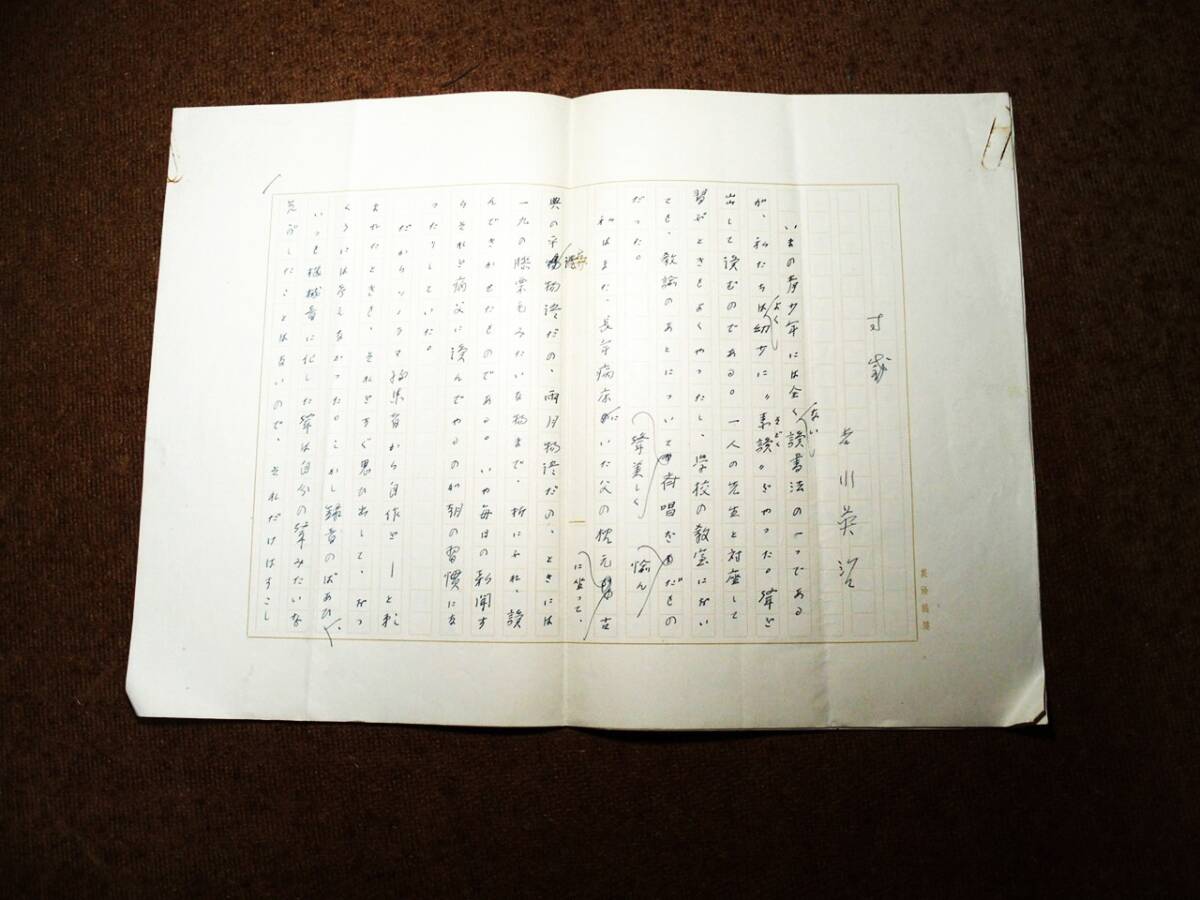 寸感
吉川英治
いまの青少年には全くない読書法の一つである
が、私たちは幼少によく“素読”をやった。聲を
出して読むのである。一人の先生と対座して
習ふときもよくやったし、学校の教室におい
ても、教諭のあとについて聲美しく愉んだもの
だった。
私はまた、長年病床にいた父の枕元に坐って、古
典の平家物語だの、雨月物語だの、ときには
一九の膝栗毛みたいな物まで、折にふれ、読
んできかせたものである。いや毎日の新聞す
らそれを病父に読んでやるのが朝の習慣にな
ったりしていた。
だからソノラマ編集者から自作を―と求
められたときも、それをすぐ思ひ出して、おっ
くうには考えなかった。しかし録音のばあひ、
いつも機械音に化した聲は自分の聲みたいな
気がしたことはないので、それだけはすこし